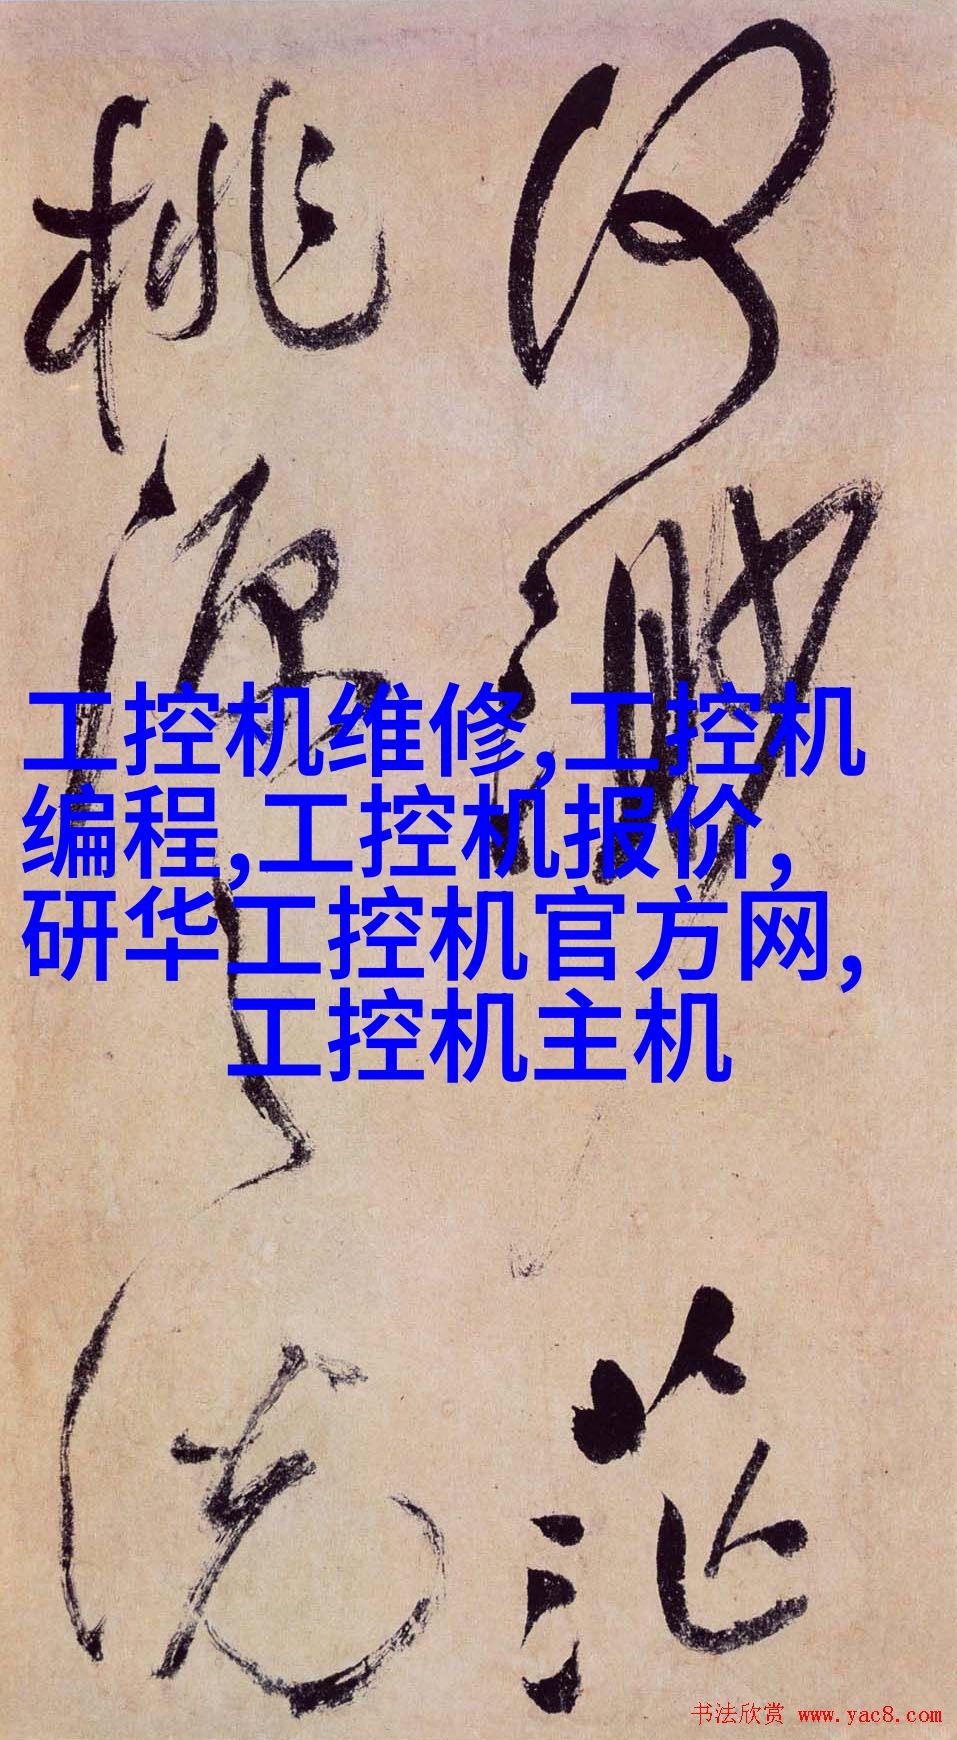 何渺茫
桃源之說
工控机维修,工控机
编程,工控机报价,
研华工控机官方网,
工控机主机
书法欣赏 www.yac8.com